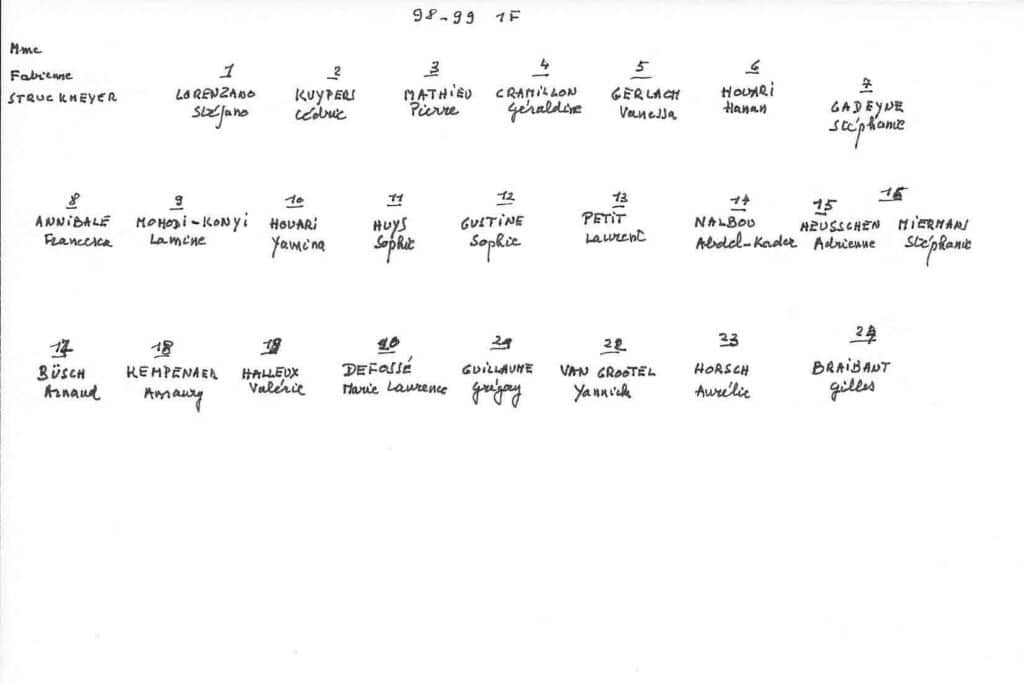 98-99 1F
Mme
Fabienne
STRUCKMEYER
1 2 3 4 5 6 7
LORENZANO KUYPERS MATHIEU CRAMILLON GERLACH HOUARI GADEYNE
Stéfano Cédric Pierre Géraldine Vanessa Hanan Stéphanie
8 9 10 11 12 13 14 15 16
ANNIBALE MOMODI-KONYI HOUARI HUYS GUSTINE PETIT NALBOU HEUSSCHEN MIERMANS
Francesca Lamine Yamina Sophie Sophie Laurent Abdel-Kader Adrienne Stéphanie
17 18 19 20 21 22 23 24
BÜSCH KEMPENAER HALLEUX DEFOSSÉ GUILLAUME VAN GROOTEL HORSCH BRAIBANT
Arnaud Amaury Valérie Marie Laurence Grégory Yannick Aurélie Gilles